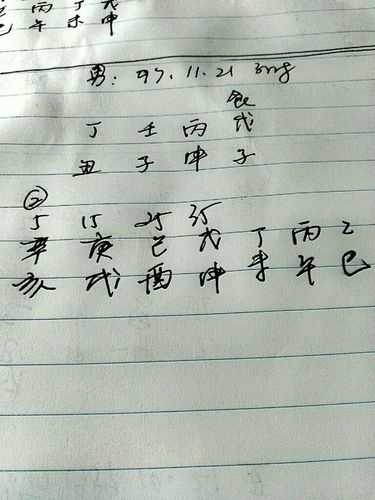 丙 丁 戊
巳 午 未 申
男: 97.11.21
食
丁 壬 丙 戊
丑 子 申 子
②
5 15 25 35
辛 庚 己 戊 丁 丙 乙
亥 戌 酉 申 未 午 巳